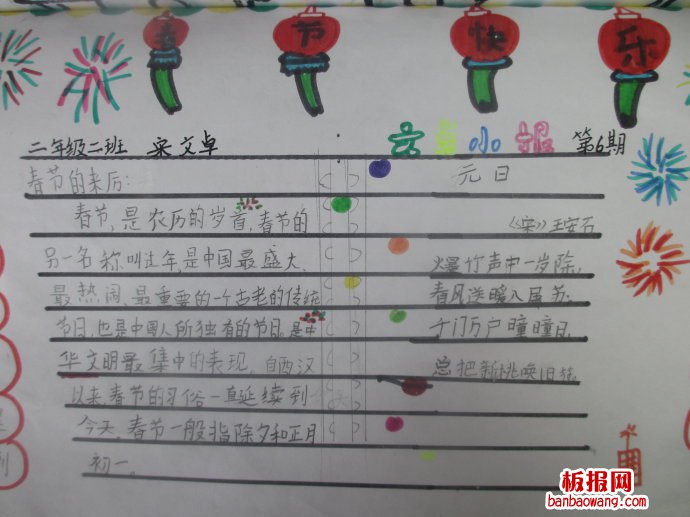 春 节 快 乐
二年级二班 宋文卓
小报 第6期
春节的来历:
春节,是农历的岁首,春节的
另一名称叫过年,是中国最盛大、
最热闹、最重要的一个古老的传统
节日,也是中国人所独有的节日。是中
华文明最集中的表现。自西汉
以来春节的习俗一直延续到
今天。春节一般指除夕和正月
初一。
元日
《宋》王安石
爆竹声中一岁除,
春风送暖入屠苏。
千门万户曈曈日,
总把新桃换旧
板报网
banbaowang.com